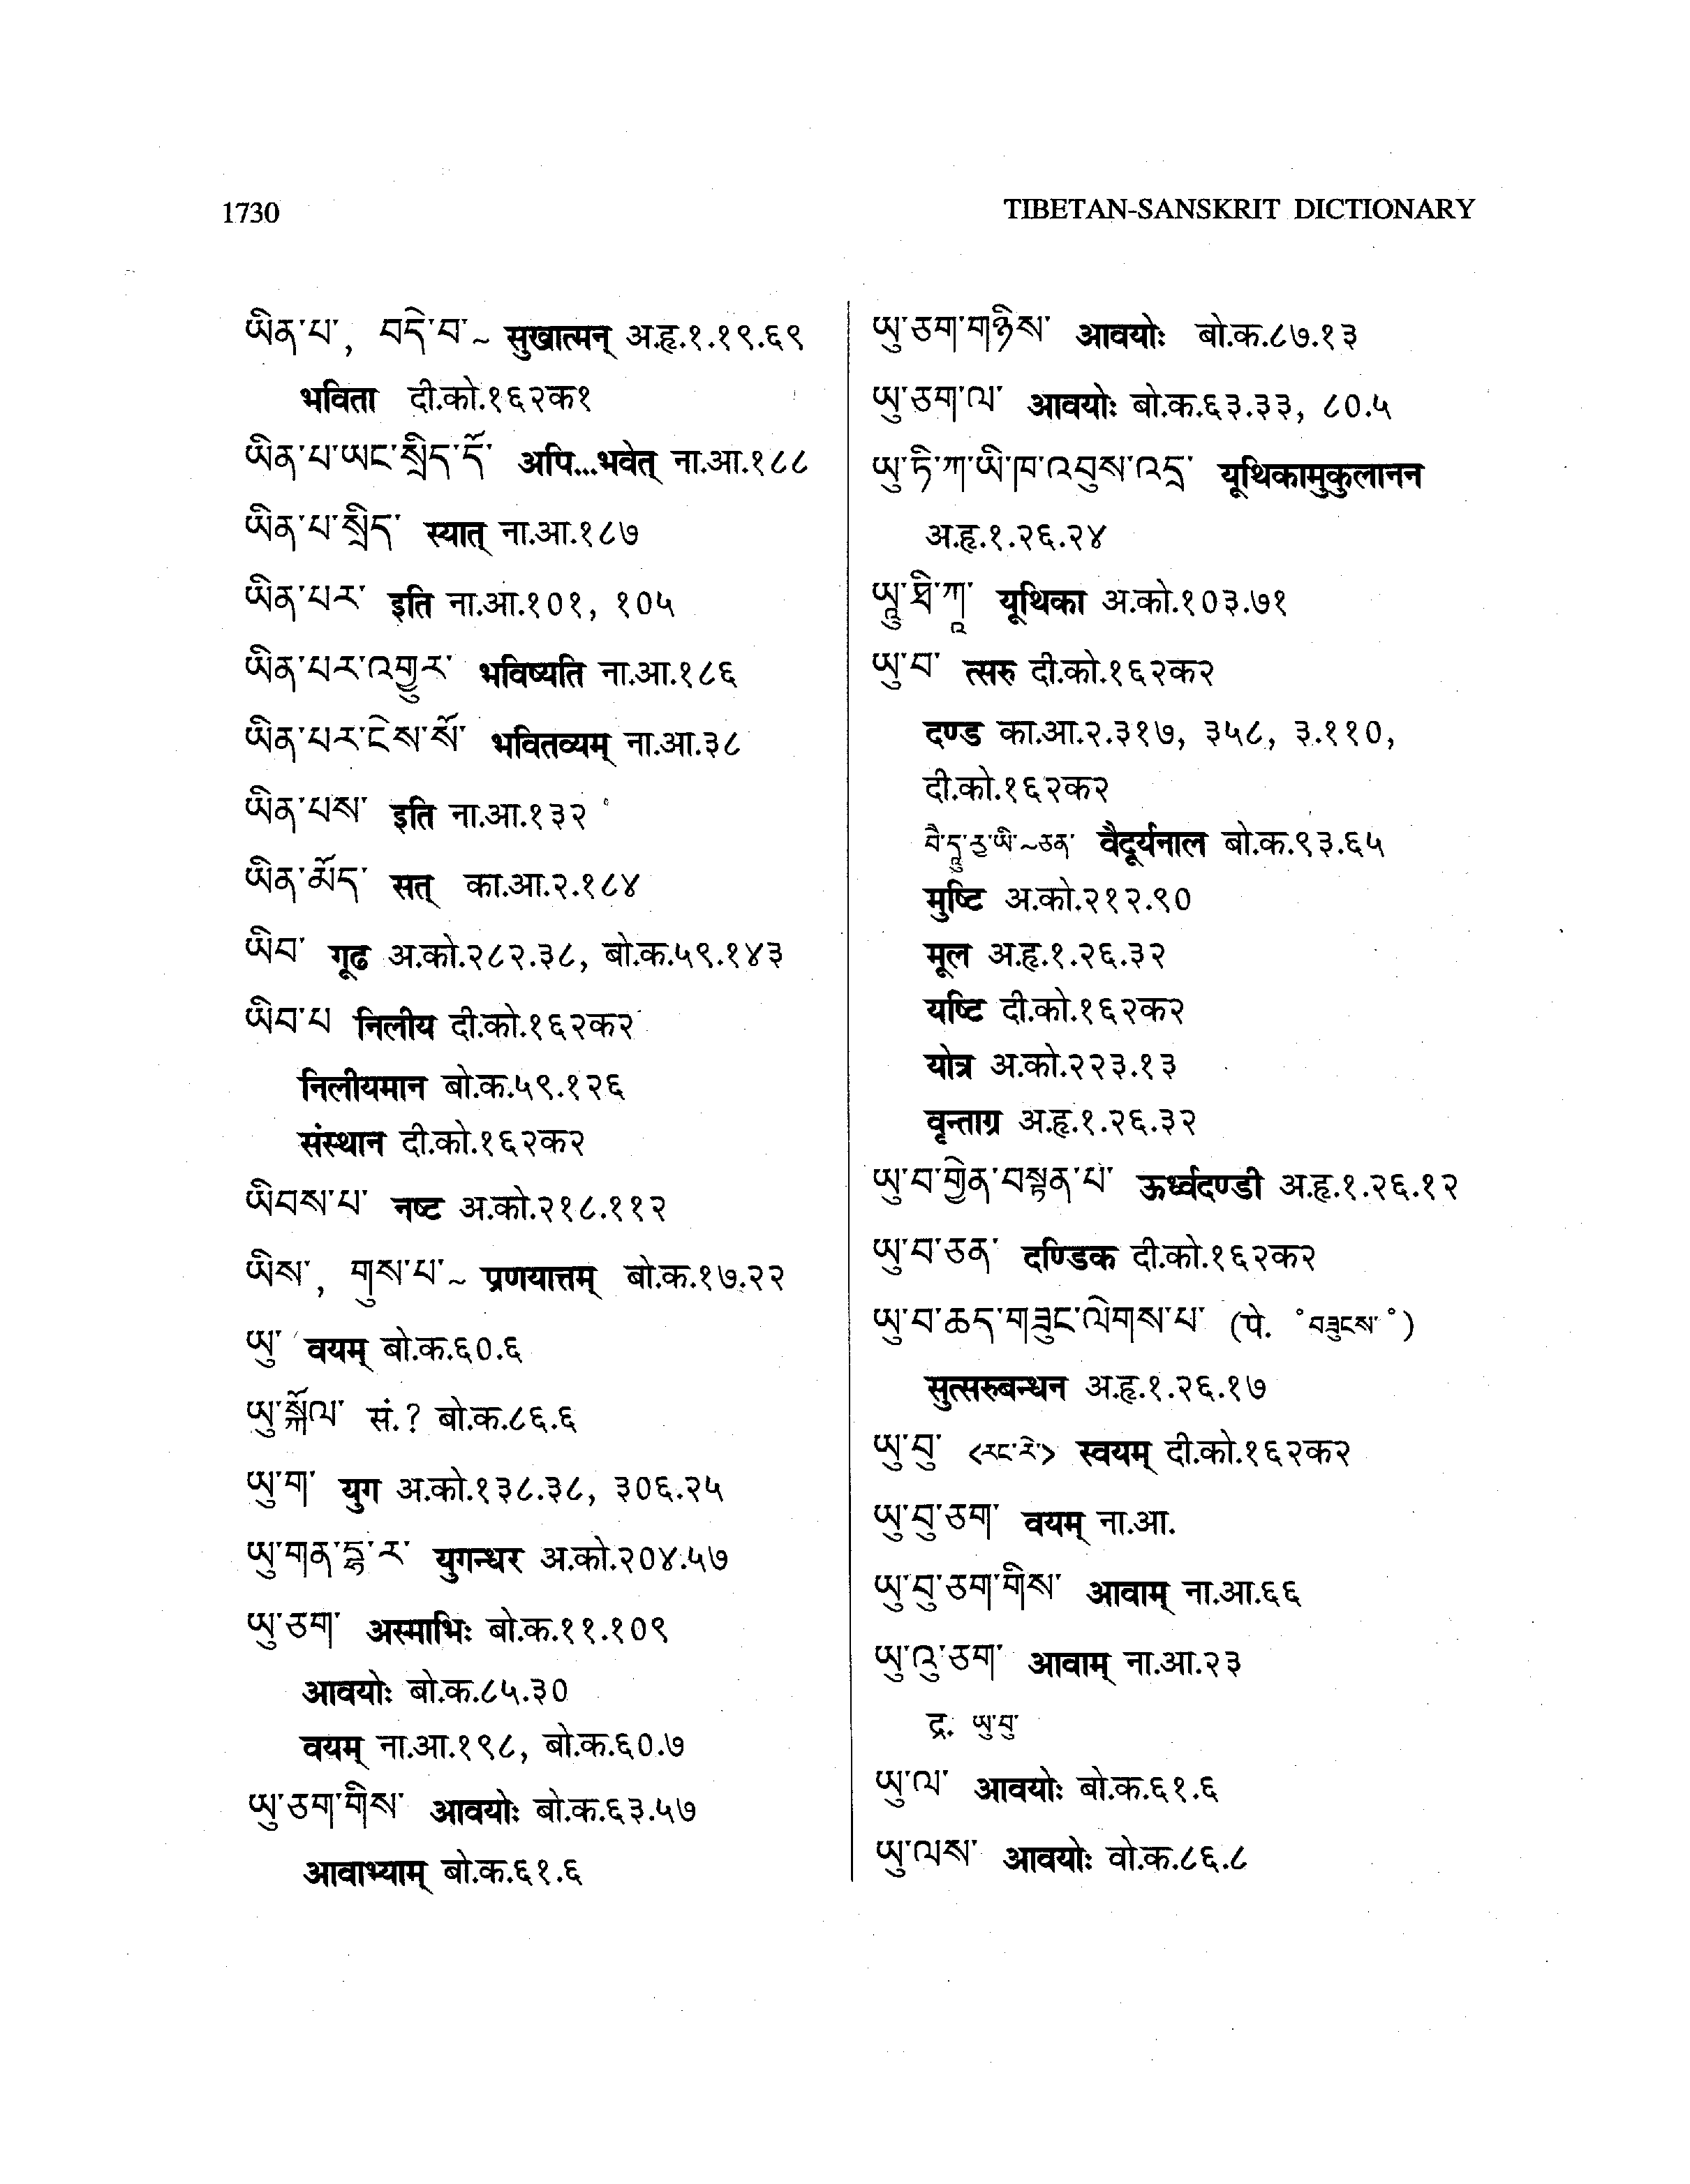 1730
TIBETAN-SANSKRIT DICTIONARY
ཡིན་པ་, བདེ་བ་~ सुखात्मन् अ.हृ.१.१९.६९
भविता दी.को.१६२क१
ཡིན་པ་ཡང་སྲིད་དོ་ अपि...भवेत् ना.आ.१८८
ཡིན་པ་སྲིད་ स्यात् ना.आ.१८७
ཡིན་པར་ इति ना.आ.१०१, १०५
ཡིན་པར་འགྱུར་ भविष्यति ना.आ.१८६
ཡིན་པར་ངེས་སོ་ भवितव्यम् ना.आ.३८
ཡིན་པས་ इति ना.आ.१३२
ཡིན་མོད་ सत् का.आ.२.१८४
ཡིབ་ गूढ अ.को.२८२.३८, बो.क.५९.१४३
ཡིབ་པ निलीय दी.को.१६२क२
निलीयमान बो.क.५९.१२६
संस्थान दी.को.१६२क२
ཡིབས་པ་ नष्ट अ.को.२१८.११२
ཡིས་, གུས་པ་~ प्रणयात्तम् बो.क.१७.२२
ཡུ་ वयम् बो.क.६०.६
ཡུ་སྐོལ་ सं.? बो.क.८६.६
ཡུ་ག་ युग अ.को.१३८.३८, ३०६.२५
ཡུ་གན་དྷ་ར་ युगन्धर अ.को.२०४.५७
ཡུ་ཅག་ अस्माभिः बो.क.११.१०९
आवयोः बो.क.८५.३०
वयम् ना.आ.१९८, बो.क.६०.७
ཡུ་ཅག་གིས་ आवयोः बो.क.६३.५७
आवाभ्याम् बो.क.६१.६
ཡུ་ཅག་གཉིས་ आवयोः बो.क.८७.१३
ཡུ་ཅག་ལ་ आवयोः बो.क.६३.३३, ८०.५
ཡུ་ཏི་ཀ་ཡི་ཁ་འབུས་འདྲ་ यूथिकामुकुलानन
अ.हृ.१.२६.२४
ཡཱུ་ཐི་ཀཱ་ यूथिका अ.को.१०३.७१
ཡུ་བ་ त्सरु दी.को.१६२क२
दण्ड का.आ.२.३१७, ३५८, ३.११०,
दी.को.१६२क२
བཻ་དཱུ་རྱ་ཡི་~ཅན་ वैदूर्यनाल बो.क.९३.६५
मुष्टि अ.को.२१२.९०
मूल अ.हृ.१.२६.३२
यष्टि दी.को.१६२क२
योत्र अ.को.२२३.१३
वृन्ताग्र अ.हृ.१.२६.३२
ཡུ་བ་གྱེན་བསྟན་པ་ ऊर्ध्वदण्डी अ.हृ.१.२६.१२
ཡུ་བ་ཅན་ दण्डिक दी.को.१६२क२
ཡུ་བ་ཆད་གཟུང་ལེགས་པ་ (पे. ॰བཟུངས་॰)
सुत्सरुबन्धन अ.हृ.१.२६.१७
ཡུ་བུ་ <རང་རེ་> स्वयम् दी.को.१६२क२
ཡུ་བུ་ཅག་ वयम् ना.आ.
ཡུ་བུ་ཅག་གིས་ आवाम् ना.आ.६६
ཡུ་འུ་ཅག་ आवाम् ना.आ.२३
द्र. ཡུ་བུ་
ཡུ་ལ་ आवयोः बो.क.६१.६
ཡུ་ལས་ आवयोः वो.क.८६.८